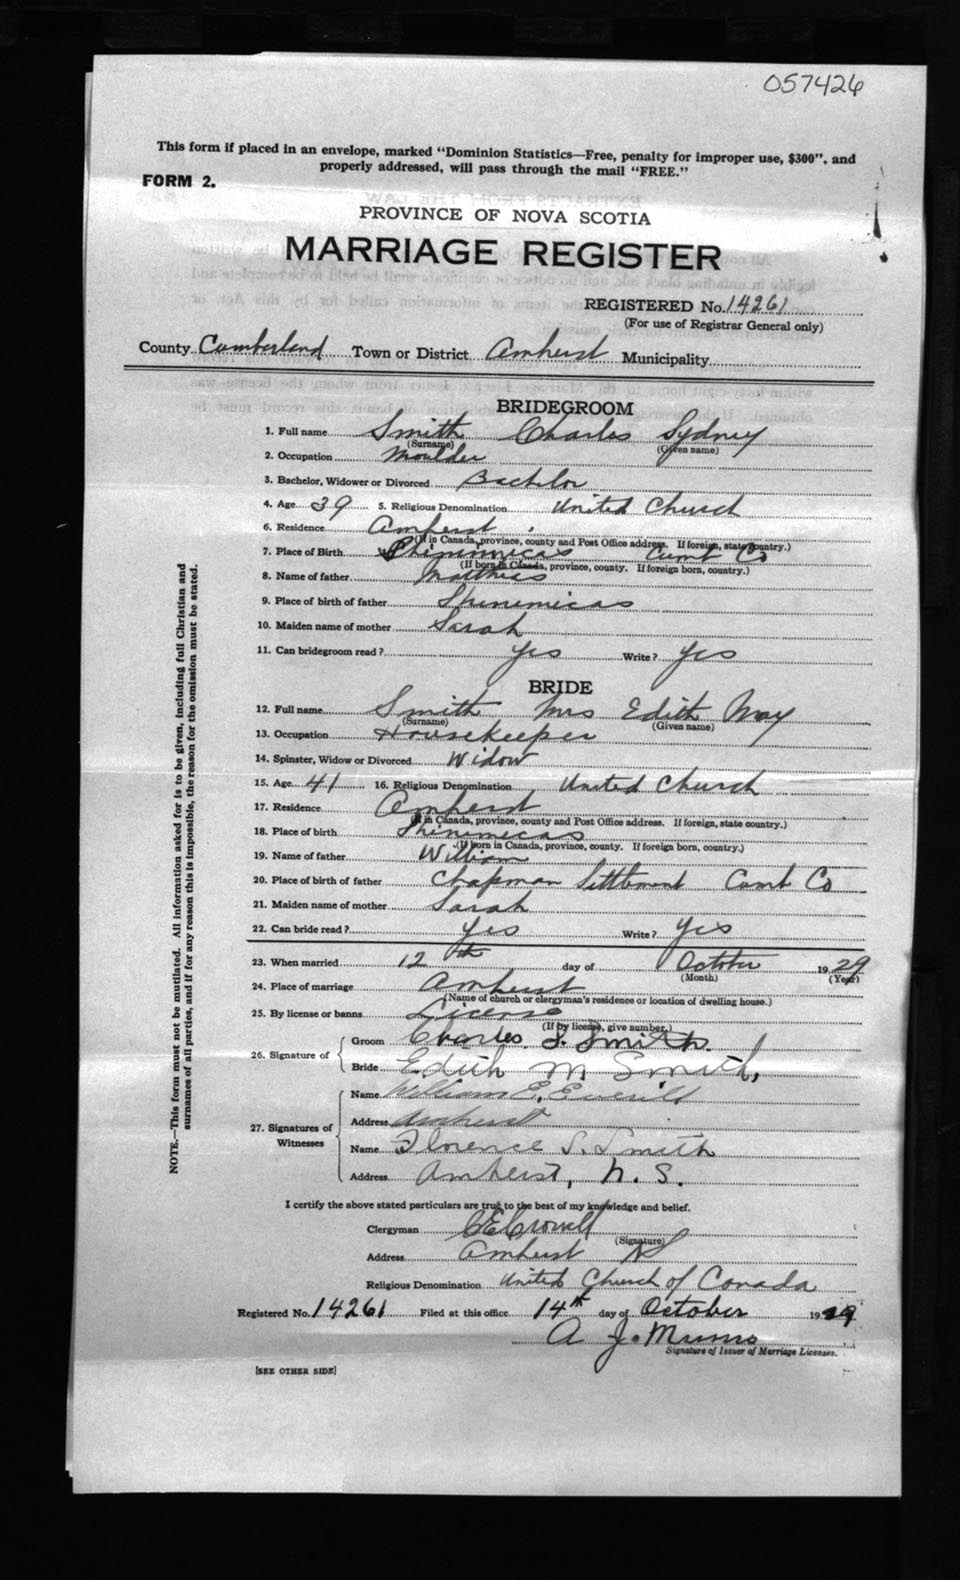 057426
This form if placed in an envelope, marked "Dominion Statistics—Free, penalty for improper use, $300", and
properly addressed, will pass through the mail "FREE."
FORM 2.
PROVINCE OF NOVA SCOTIA
MARRIAGE REGISTER
REGISTERED No. 14261
(For use of Registrar General only)
County Cumberland Town or District Amherst Municipality
BRIDEGROOM
1. Full name Smith Charles Sydney
(Surname) (Given name)
2. Occupation Moulder
3. Bachelor, Widower or Divorced Bachelor
4. Age 39 5. Religious Denomination United Church
6. Residence Amherst
(If in Canada, province, county and Post Office address. If foreign, state country.)
7. Place of Birth Shinimicas Cumb Co
(If born in Canada, province, county. If foreign born, country.)
8. Name of father Matthias
9. Place of birth of father Shinemicas
10. Maiden name of mother Sarah
11. Can bridegroom read? Yes Write? Yes
BRIDE
12. Full name Smith Mrs Edith May
(Surname) (Given name)
13. Occupation Housekeeper
14. Spinster, Widow or Divorced Widow
15. Age 41 16. Religious Denomination United Church
17. Residence Amherst
(If in Canada, province, county and Post Office address. If foreign, state country.)
18. Place of birth Shinemicas
(If born in Canada, province, county. If foreign born, country.)
19. Name of father William
20. Place of birth of father Chapman Settlement Cumb Co
21. Maiden name of mother Sarah
22. Can bride read? Yes Write? Yes
23. When married 12th day of October 1929
(Month) (Year)
24. Place of marriage Amherst
(Name of church or clergyman's residence or location of dwelling house.)
25. By license or banns License
(If by license, give number.)
26. Signature of
Groom Charles S. Smith.
Bride Edith M Smith,
27. Signatures of Witnesses
Name William E. Everitt
Address Amherst
Name Florence S. Smith
Address Amherst, N. S.
I certify the above stated particulars are true to the best of my knowledge and belief.
Clergyman C E Crowell
(Signature)
Address Amherst NS
Religious Denomination United Church of Canada
Registered No. 14261 Filed at this office 14th day of October 1929
A J. Munro
Signature of Issuer of Marriage Licenses.
[SEE OTHER SIDE]
NOTE.—This form must not be mutilated. All information asked for is to be given, including full Christian and
surnames of all parties, and if for any reason this is impossible, the reason for the omission must be stated.